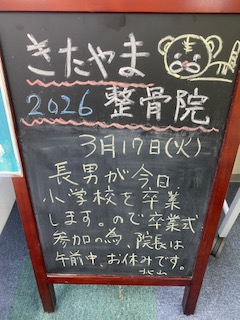 きたやま
2026 整骨院
3月17日(火)
長男が今日
小学校を卒業
します。ので卒業式
参加の為、院長は
午前中、お休みです。
北山